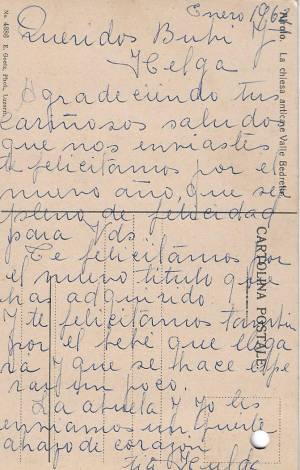 Enero 1963
Queridos Bubi
y
Helga
Agradeciendo tus
cariñosos saludos
que nos enviastes
te felicitamos por el
nuevo año, que sea
pleno de felicidad
para Vds
Te felicitamos por
el nuevo titulo que
has adquirido
Y te felicitamos también
por el bebé que llega
rá y que se hace espe
rar un poco.
La abuela y yo les
enviamos un fuerte
abrazo de corazón
tia
No. 4686 E. Goetz, Phot., Luzern.
La chiesa antica e Valle Bedretto
CARTOLINA POSTALE.